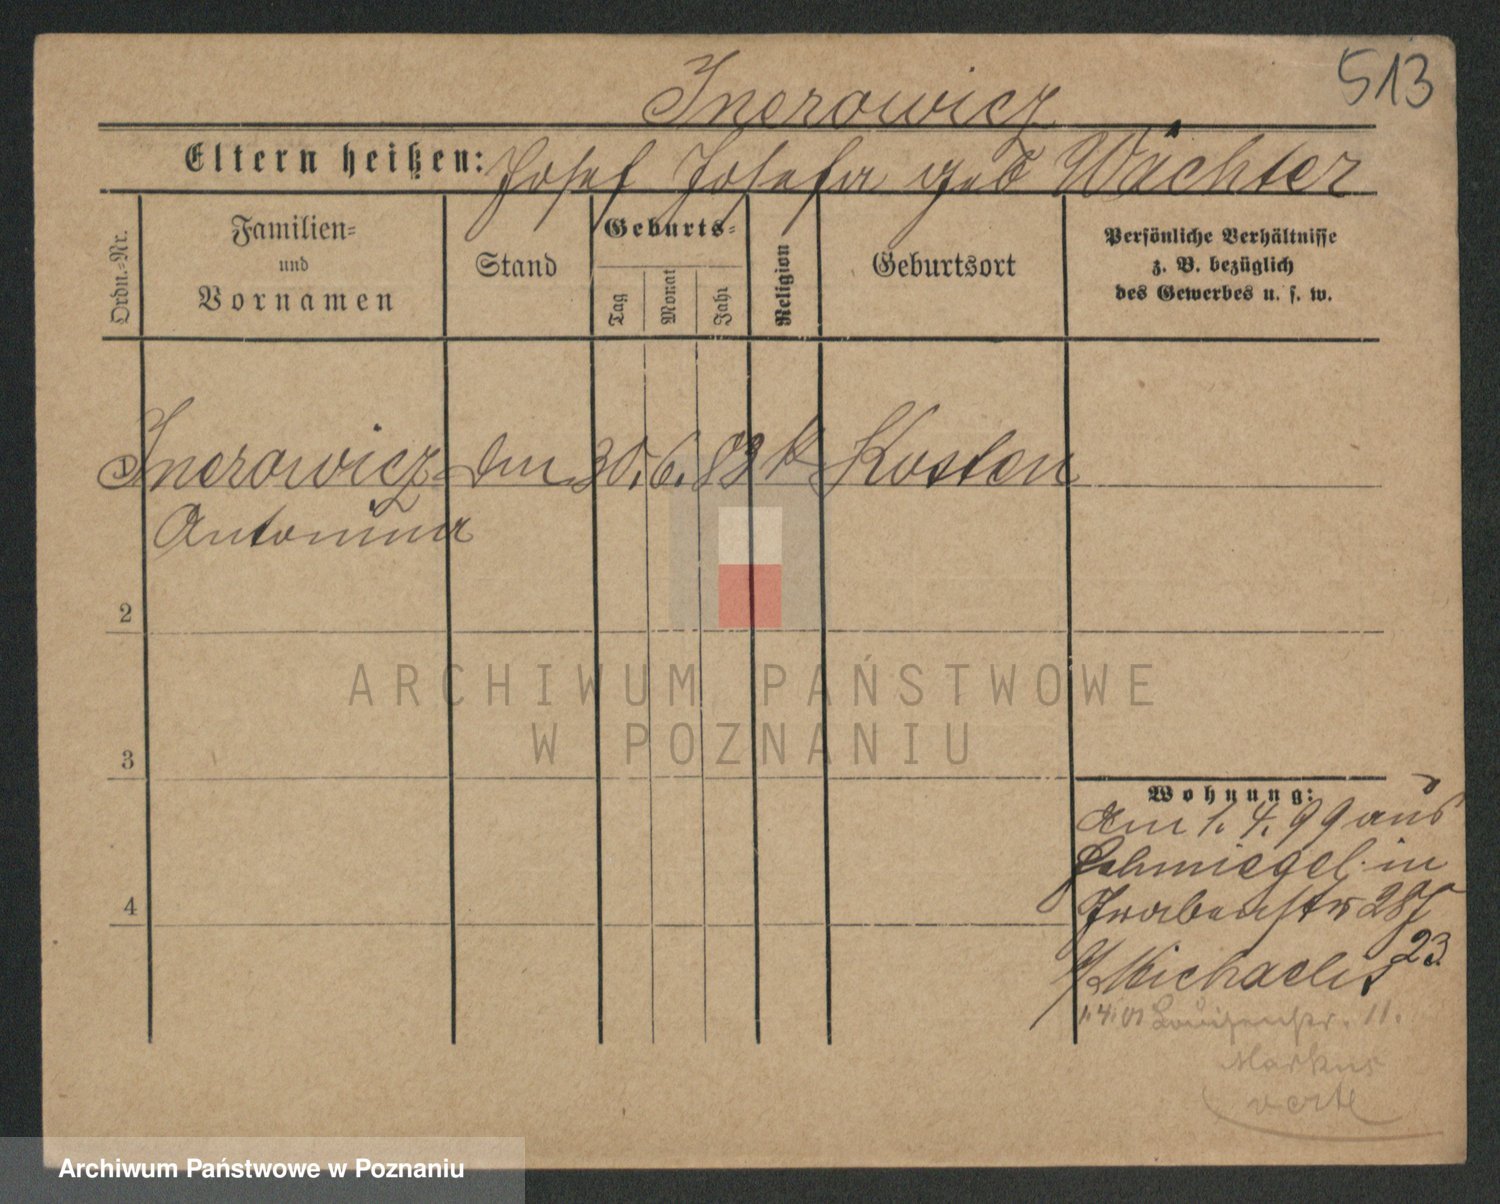 513
Inerowicz
Eltern heißen: Josef Josefa geb Wächter
Ordn.=Nr.
Familien=
und
Vornamen
Stand
Geburts=
Tag
Monat
Jahr
Religion
Geburtsort
Persönliche Verhältnisse
z. B. bezüglich
des Gewerbes u. s. w.
Inerowicz den 30. 6. 83 k Kosten
Antonina
2
3
4
Wohnung:
am 1. 4. 99 aus
Schmiegel in
23
b/ Michaelis
1.4.01 Louisenstr. 11.
Markus
verte
ARCHIWUM PAŃSTWOWE
W POZNANIU
Archiwum Państwowe w Poznaniu